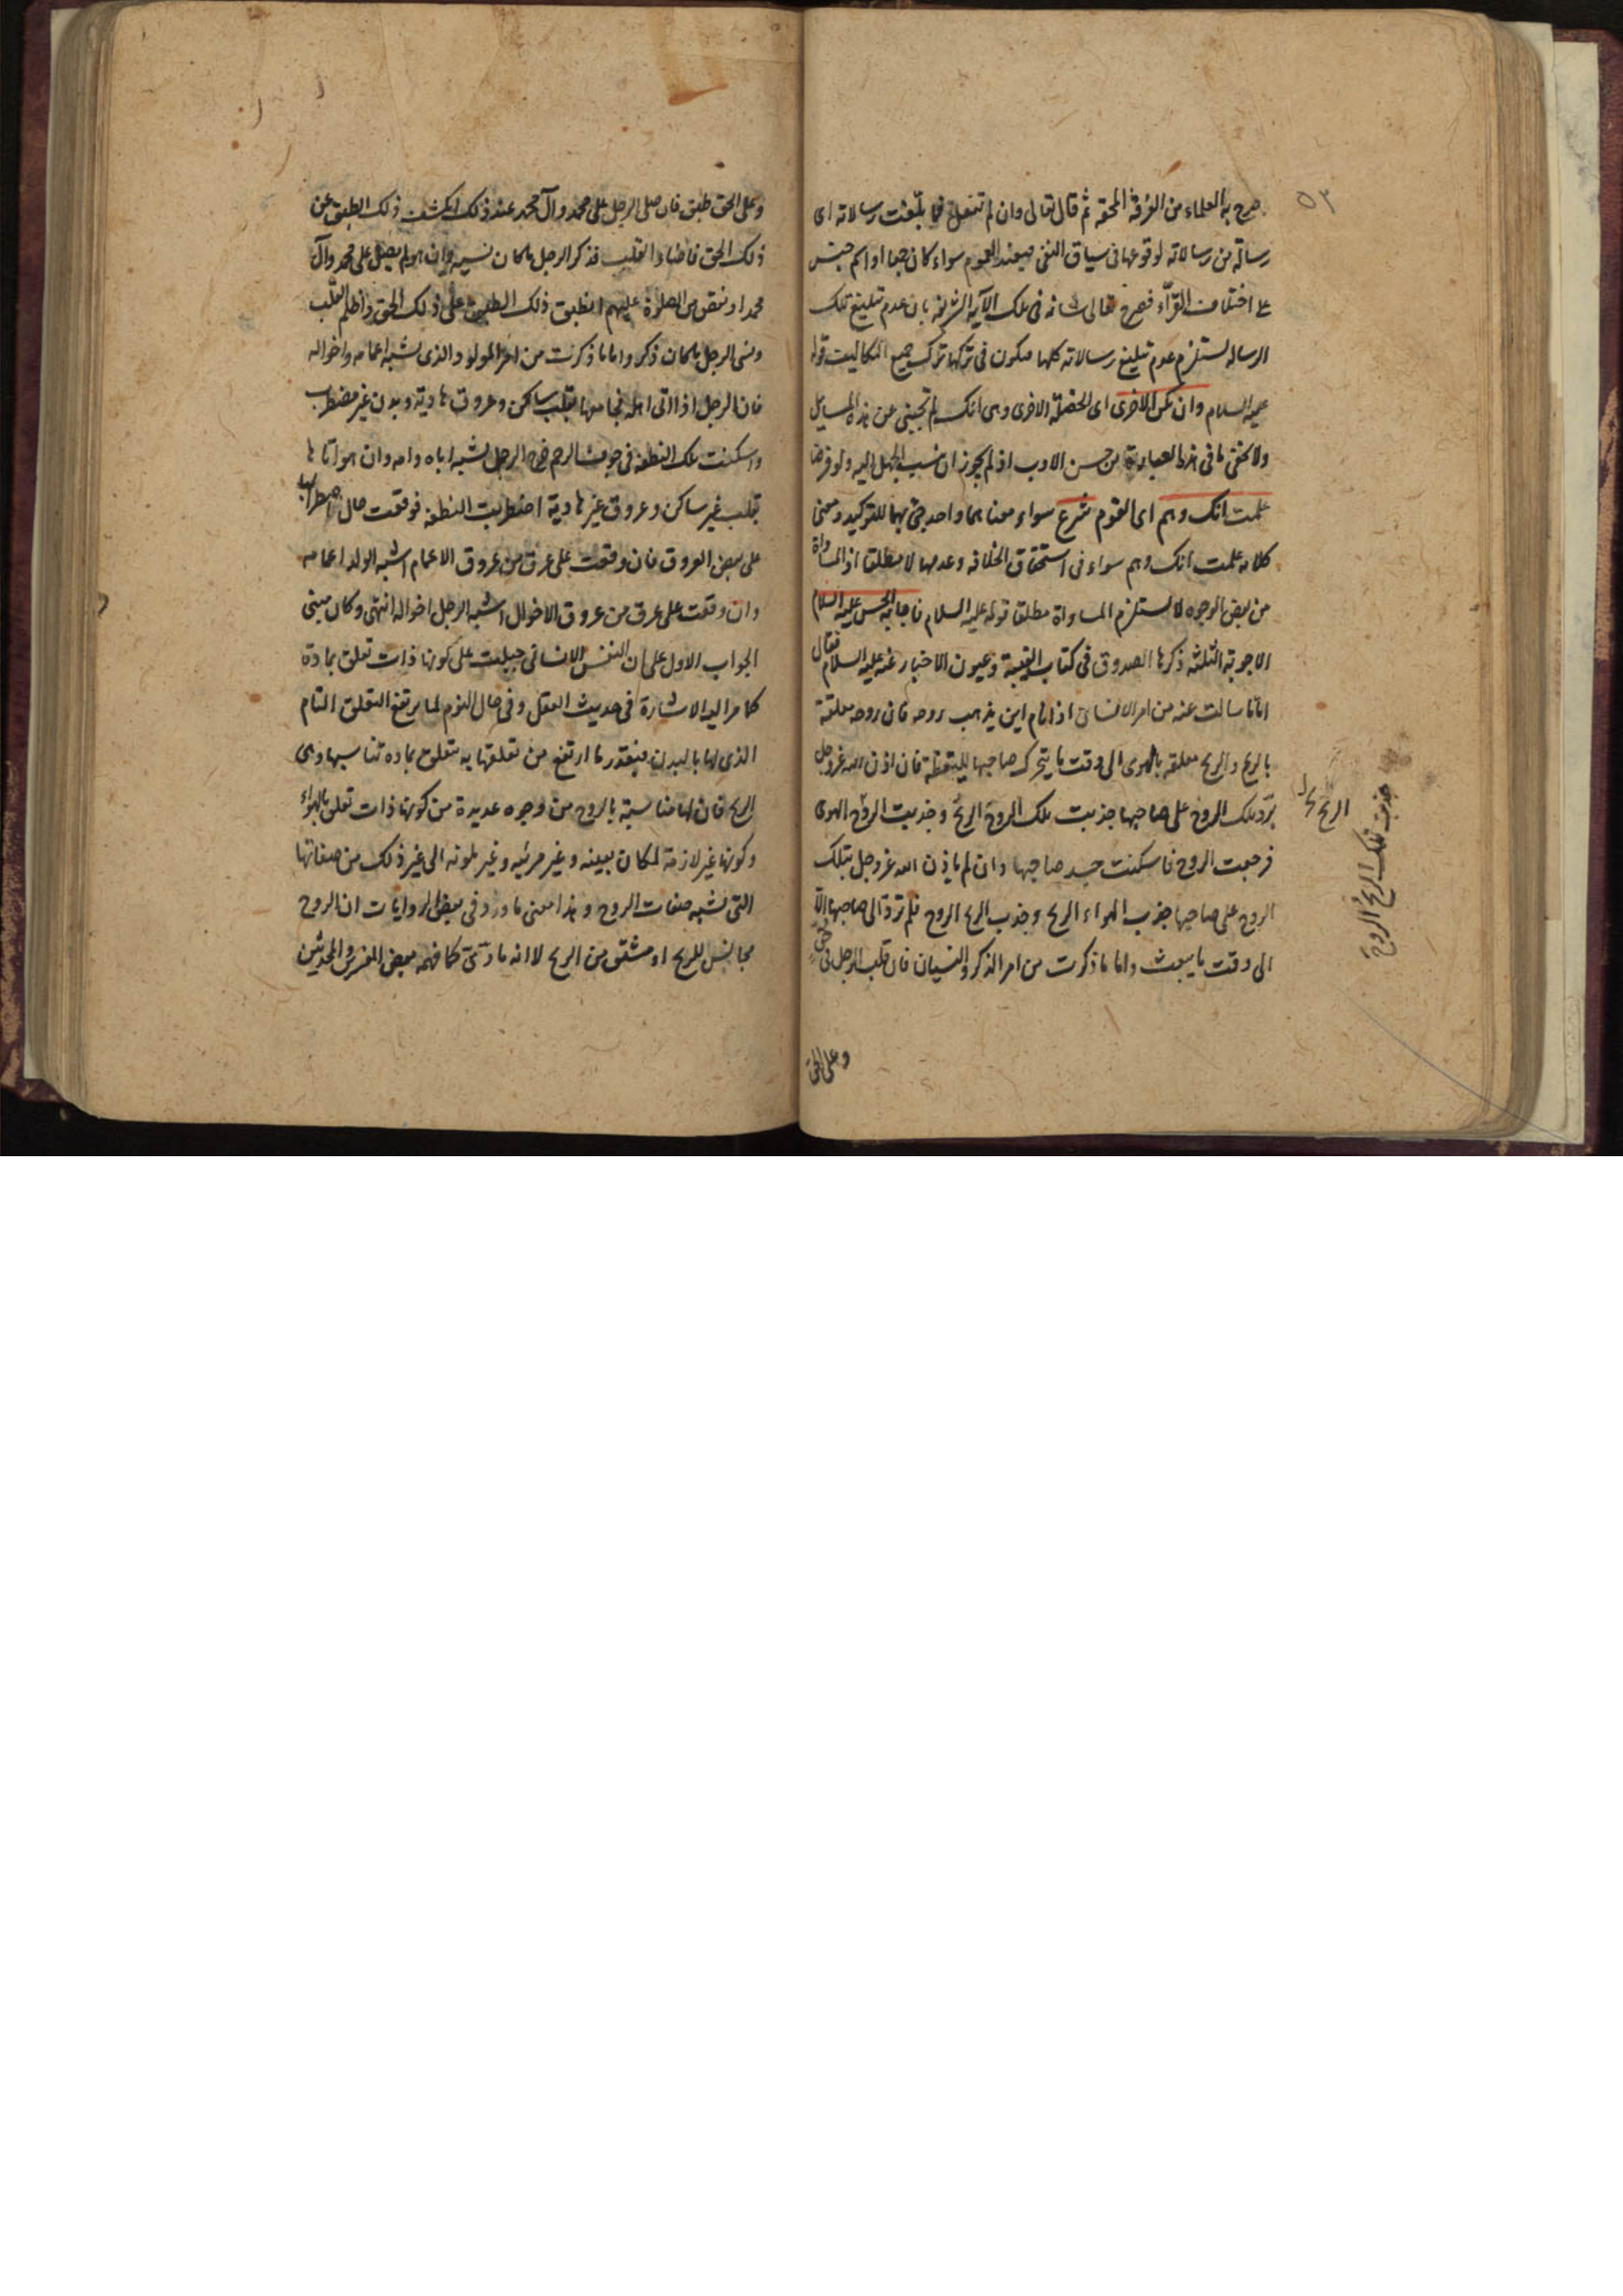 ٥٣
صرح به العلماء من الفرقة المحقه ثم قال تعالى وان لم تفعل فما بلّغت رسالاته اى
رسالة من رسالاته لوقوعها فى سياق النفى فيفيد العموم سواء كان جمعا او اسم جنس
على اختلاف القرّاء فصرح تعالى شانه فى تلك الآية الشريفة بان عدم تبليغ تلك
الرساله يستلزم عدم تبليغ رسالاته كلها فيكون فى تركها ترك جميع التكاليف قوله
عليه السلام وان تكن الاخرى اى الخصلة الاخرى وهى انك لم تجبنى عن هذه المسايل
ولا يخفى ما فى هذه العبارة من حسن الادب اذ لم يجوز ان ينسب الجهل اليه ولو فرضا
علمت انك وهم اى القوم شرع سواء معناهما واحد جئ بهما للتوكيد ومعنى
كلامه علمت انك وهم سواء فى استحقاق الخلافه وعدمها لا مطلقا اذ المساواة
من بعض الوجوه لا يستلزم المساواة مطلقا قوله عليه السلام فاجابه الحسن عليه السلام
الاجوبة الثلثه ذكرها الصدوق فى كتاب الغيبة وعيون الاخبار عنه عليه السلام فقال
امّا ما سالت عنه من امر الانسان اذا نام اين يذهب روحه فان روحه معلقة
بالريح والريح معلقه بالهوى الى وقت ما يتحرك صاحبها لليقظة فان اذن الله عزوجل
بردّ تلك الروح على صاحبها جذبت تلك الروح الريح وجذبت الروح الهوى
فرجعت الروح فاسكنت جسد صاحبها وان لم ياذن الله عزوجل بتلك
الروح على صاحبها جذب الهواء الريح وجذب الريح الروح فلم تردّ الى صاحبها الّا
الى وقت ما يبعث واما ما ذكرت من امر الذكر والنسيان فان قلب الرجل فى حق
الريح خ ل
جذبت تلك الريح الروح
وعلى الحق
وعلى الحق طبق فان صلى الرجل على محمد وآل محمد عند ذلك انكشف ذلك الطبق عن
ذلك الحق فاضاء القلب فذكر الرجل ما كان نسيه وان هو لم يصل على محمد وآل
محمد او نقص من الصلوة عليهم انطبق ذلك الطبق على ذلك الحق واظلم القلب
ونسى الرجل ما كان ذكر واما ما ذكرت من امر المولود الذى يشبه اعمامه واخواله
فان الرجل اذا اتى اهله فجامعها بقلب ساكن وعروق هادية وبدن غير مضطرب
واسكنت تلك النطفة فى جوف الرحم خرج الرجل يشبه اباه وامه وان هو اتاها
بقلب غير ساكن وعروق غير هادية اضطربت النطفة فوقعت حال اضطرابها
على بعض العروق فان وقعت على عرق من عروق الاعمام اشبه الولد اعمامه
وان وقعت على عرق من عروق الاخوال اشبه الرجل اخواله انتهى وكان مبنى
الجواب الاول على ان النفس الانسانى جبلت على كونها ذات تعلق بمادة
كما مر اليه الاشارة فى حديث العقل وفى حال النوم لما يرتفع التعلق التام
الذى لها بالبدن فبقدر ما ارتفع من تعلقها به تتعلق بماده تناسبها وهى
الريح فان لها مناسبة بالروح من وجوه عديدة من كونها ذات تعلق بالهواء
وكونها غير لازمة لمكان بعينه وغير مرئيه وغير ملونه الى غير ذلك من صفاتها
التى تشبه صفات الروح وهذا معنى ما ورد فى بعض الروايات ان الروح
مجانس للريح او مشتق من الريح لا انه مادّىّ كما فهمه بعض المفسرين والمحدثين